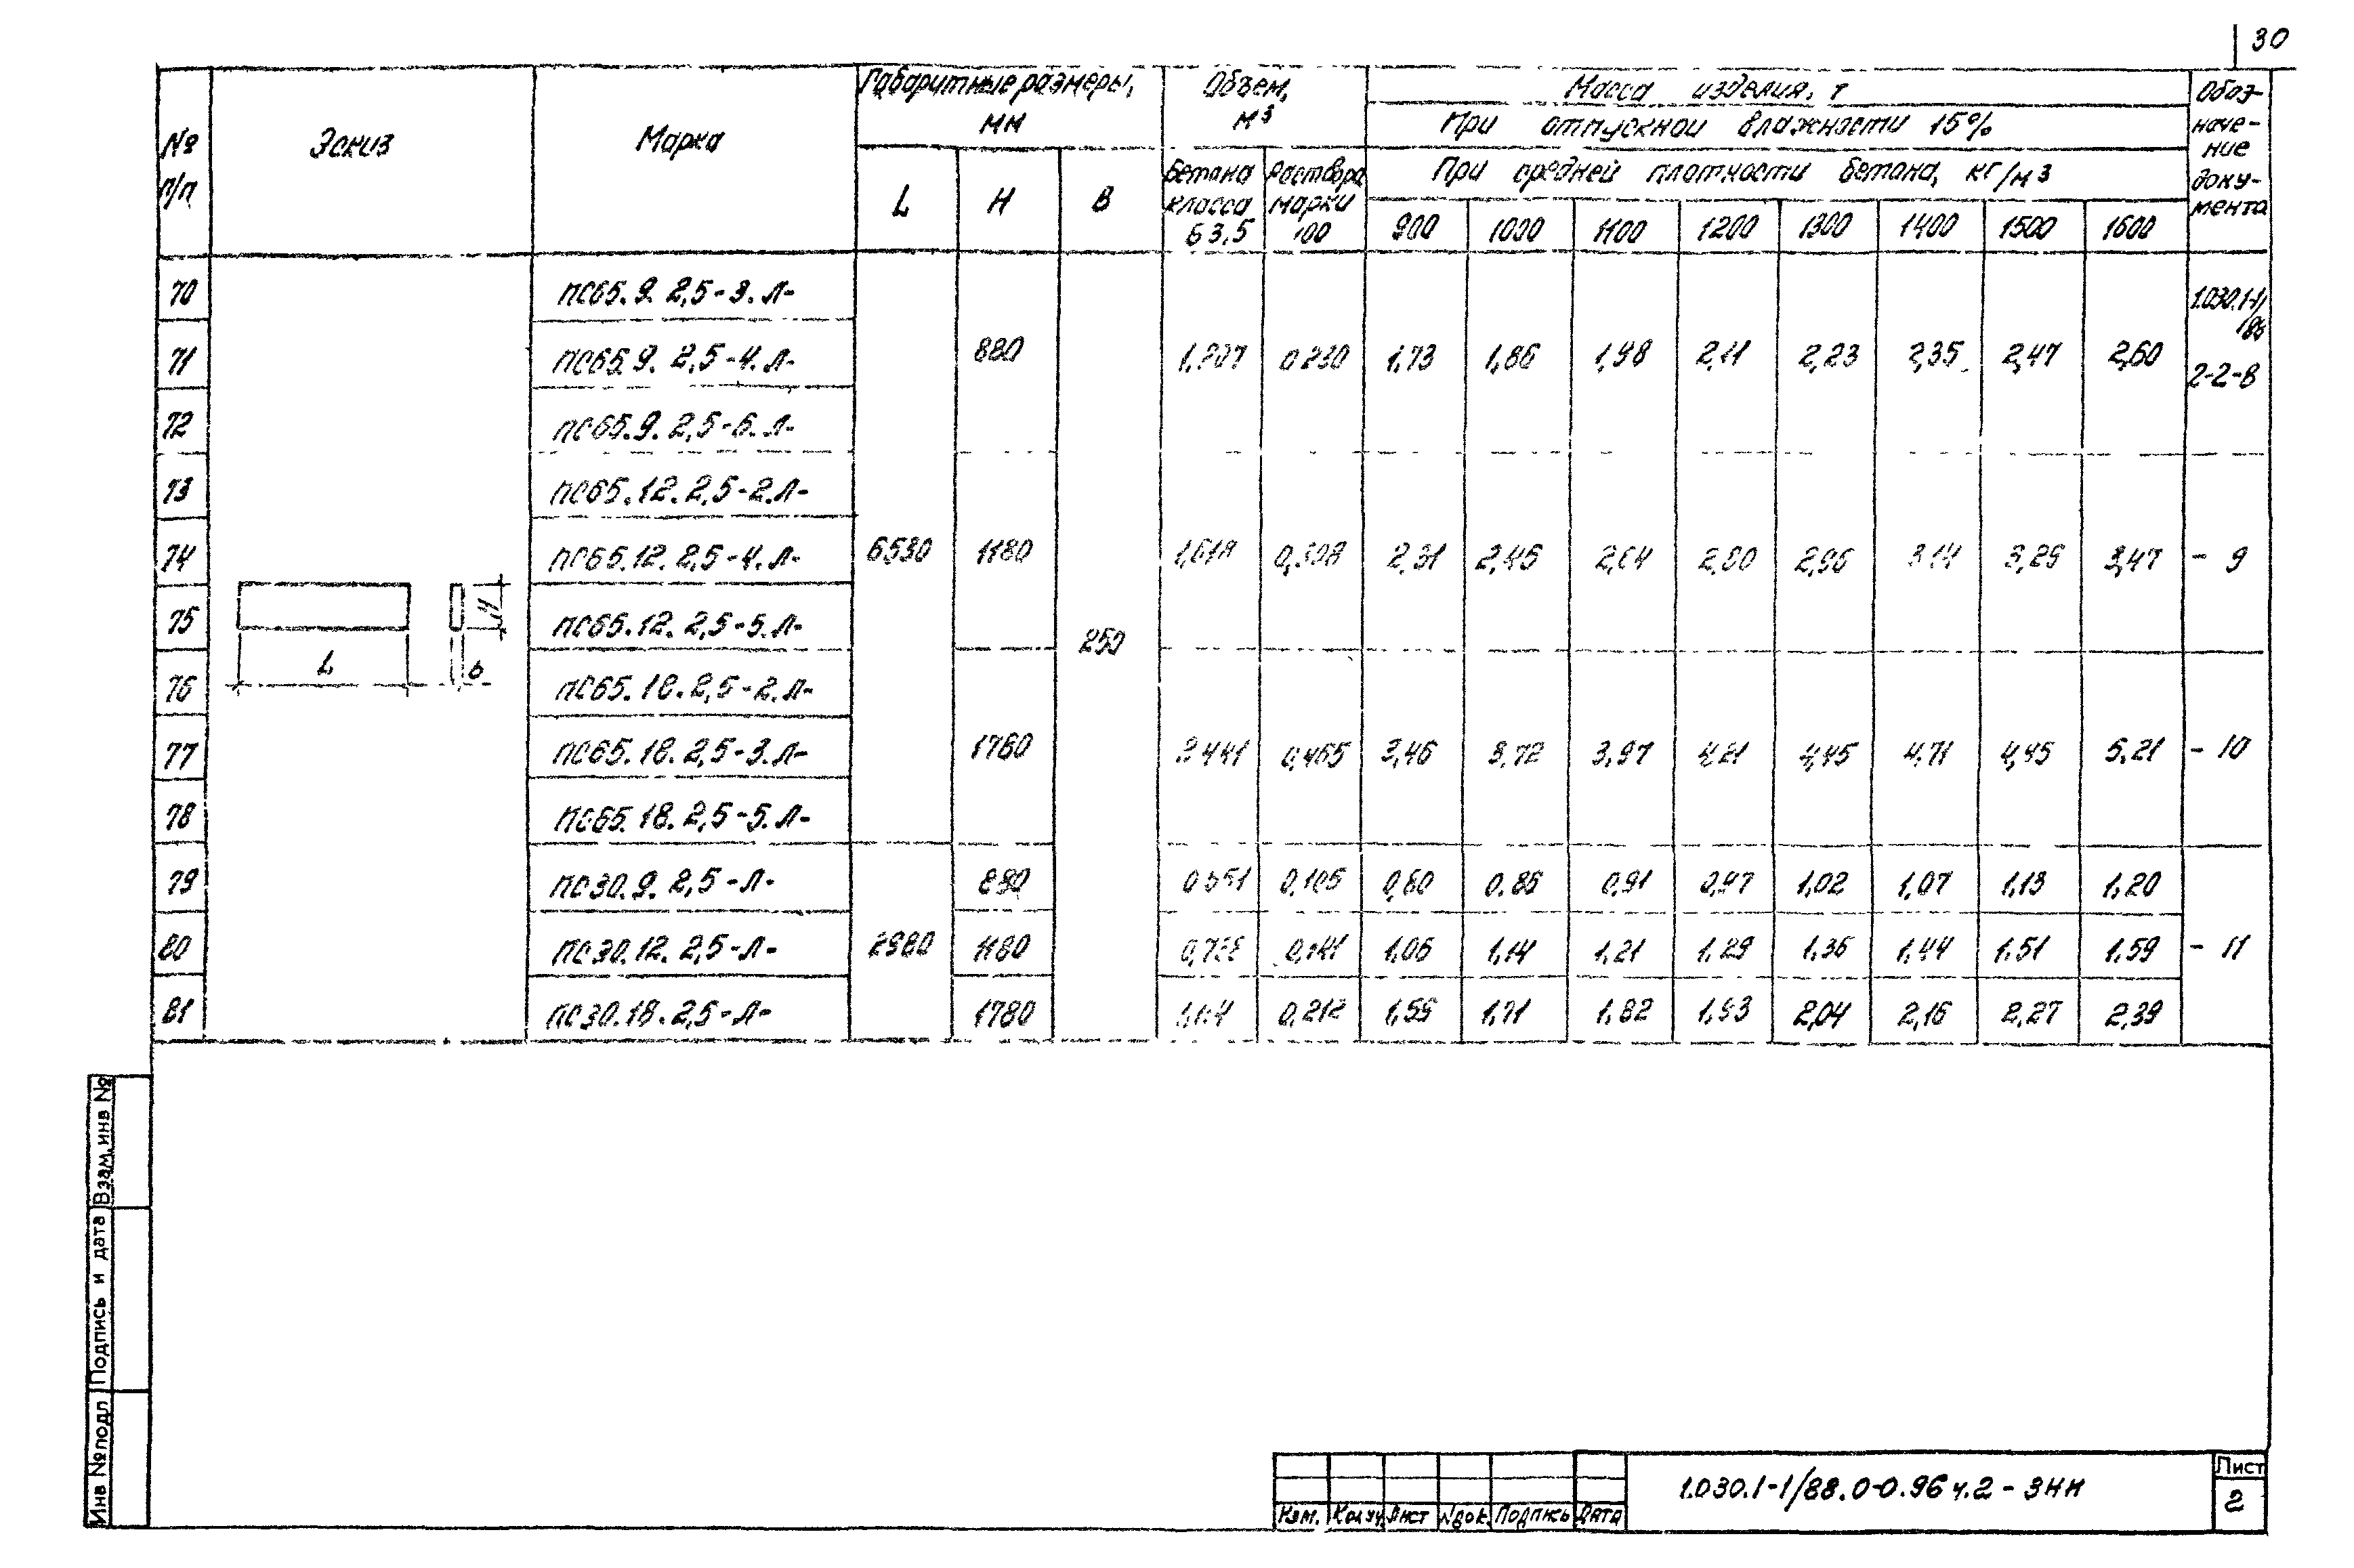 30
№ п/п
Эскиз
Марка
Габаритные размеры, мм
L
H
B
Объем, м³
Бетона класса Б 3,5
Раствора марки 100
Масса изделия, т
При отпускной влажности 15%
При средней плотности бетона, кг/м3
900 1000 1100 1200 1300 1400 1500 1600
Обоз-
наче-
ние
доку-
мента
70 ПС65.9.2,5-3.Л-
71 ПС65.9.2,5-4.Л- 880 0,230 1,73 1,86 1,98 2,11 2,23 2,35 2,47 2,60
1.030.1-1/88
2-2-8
72 ПС65.9.2,5-6.Л-
73 ПС65.12.2,5-2.Л-
74 ПС65.12.2,5-4.Л- 6530 1180 1,618 0,308 2,31 2,45 2,64 2,80 2,96 3,14 3,29 3,47 - 9
75 ПС65.12.2,5-5.Л-
250
76 ПС65.18.2,5-2.Л-
L
b
H
77 ПС65.18.2,5-3.Л- 1780 2,441 0,465 3,46 3,72 3,97 4,21 4,45 4,71 4,45 5,21 - 10
78 ПС65.18.2,5-5.Л-
79 ПС30.9.2,5-Л- 880 0,551 0,105 0,80 0,86 0,91 0,97 1,02 1,07 1,13 1,20
80 ПС30.12.2,5-Л- 2980 1180 0,141 1,06 1,14 1,21 1,29 1,36 1,44 1,51 1,59 - 11
81 ПС30.18.2,5-Л- 1780 0,212 1,59 1,71 1,82 1,93 2,04 2,16 2,27 2,39
Взам.инв №
Подпись и дата
Инв № подл
Изм. Кол.уч Лист №док. Подпись Дата
1.030.1-1/88.0-0.96 ч.2 - 3НИ
Лист
2